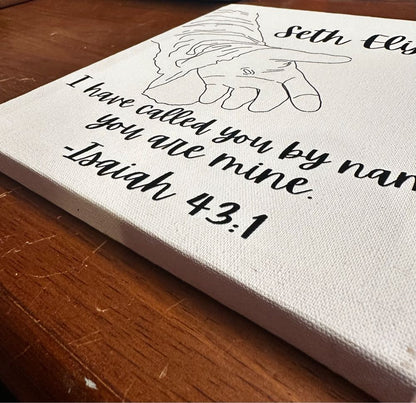 Seth Elis
I have called you by nam
you are mine.
-Isaiah 43:1